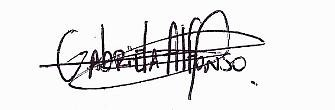 Gabriella Alfonso.